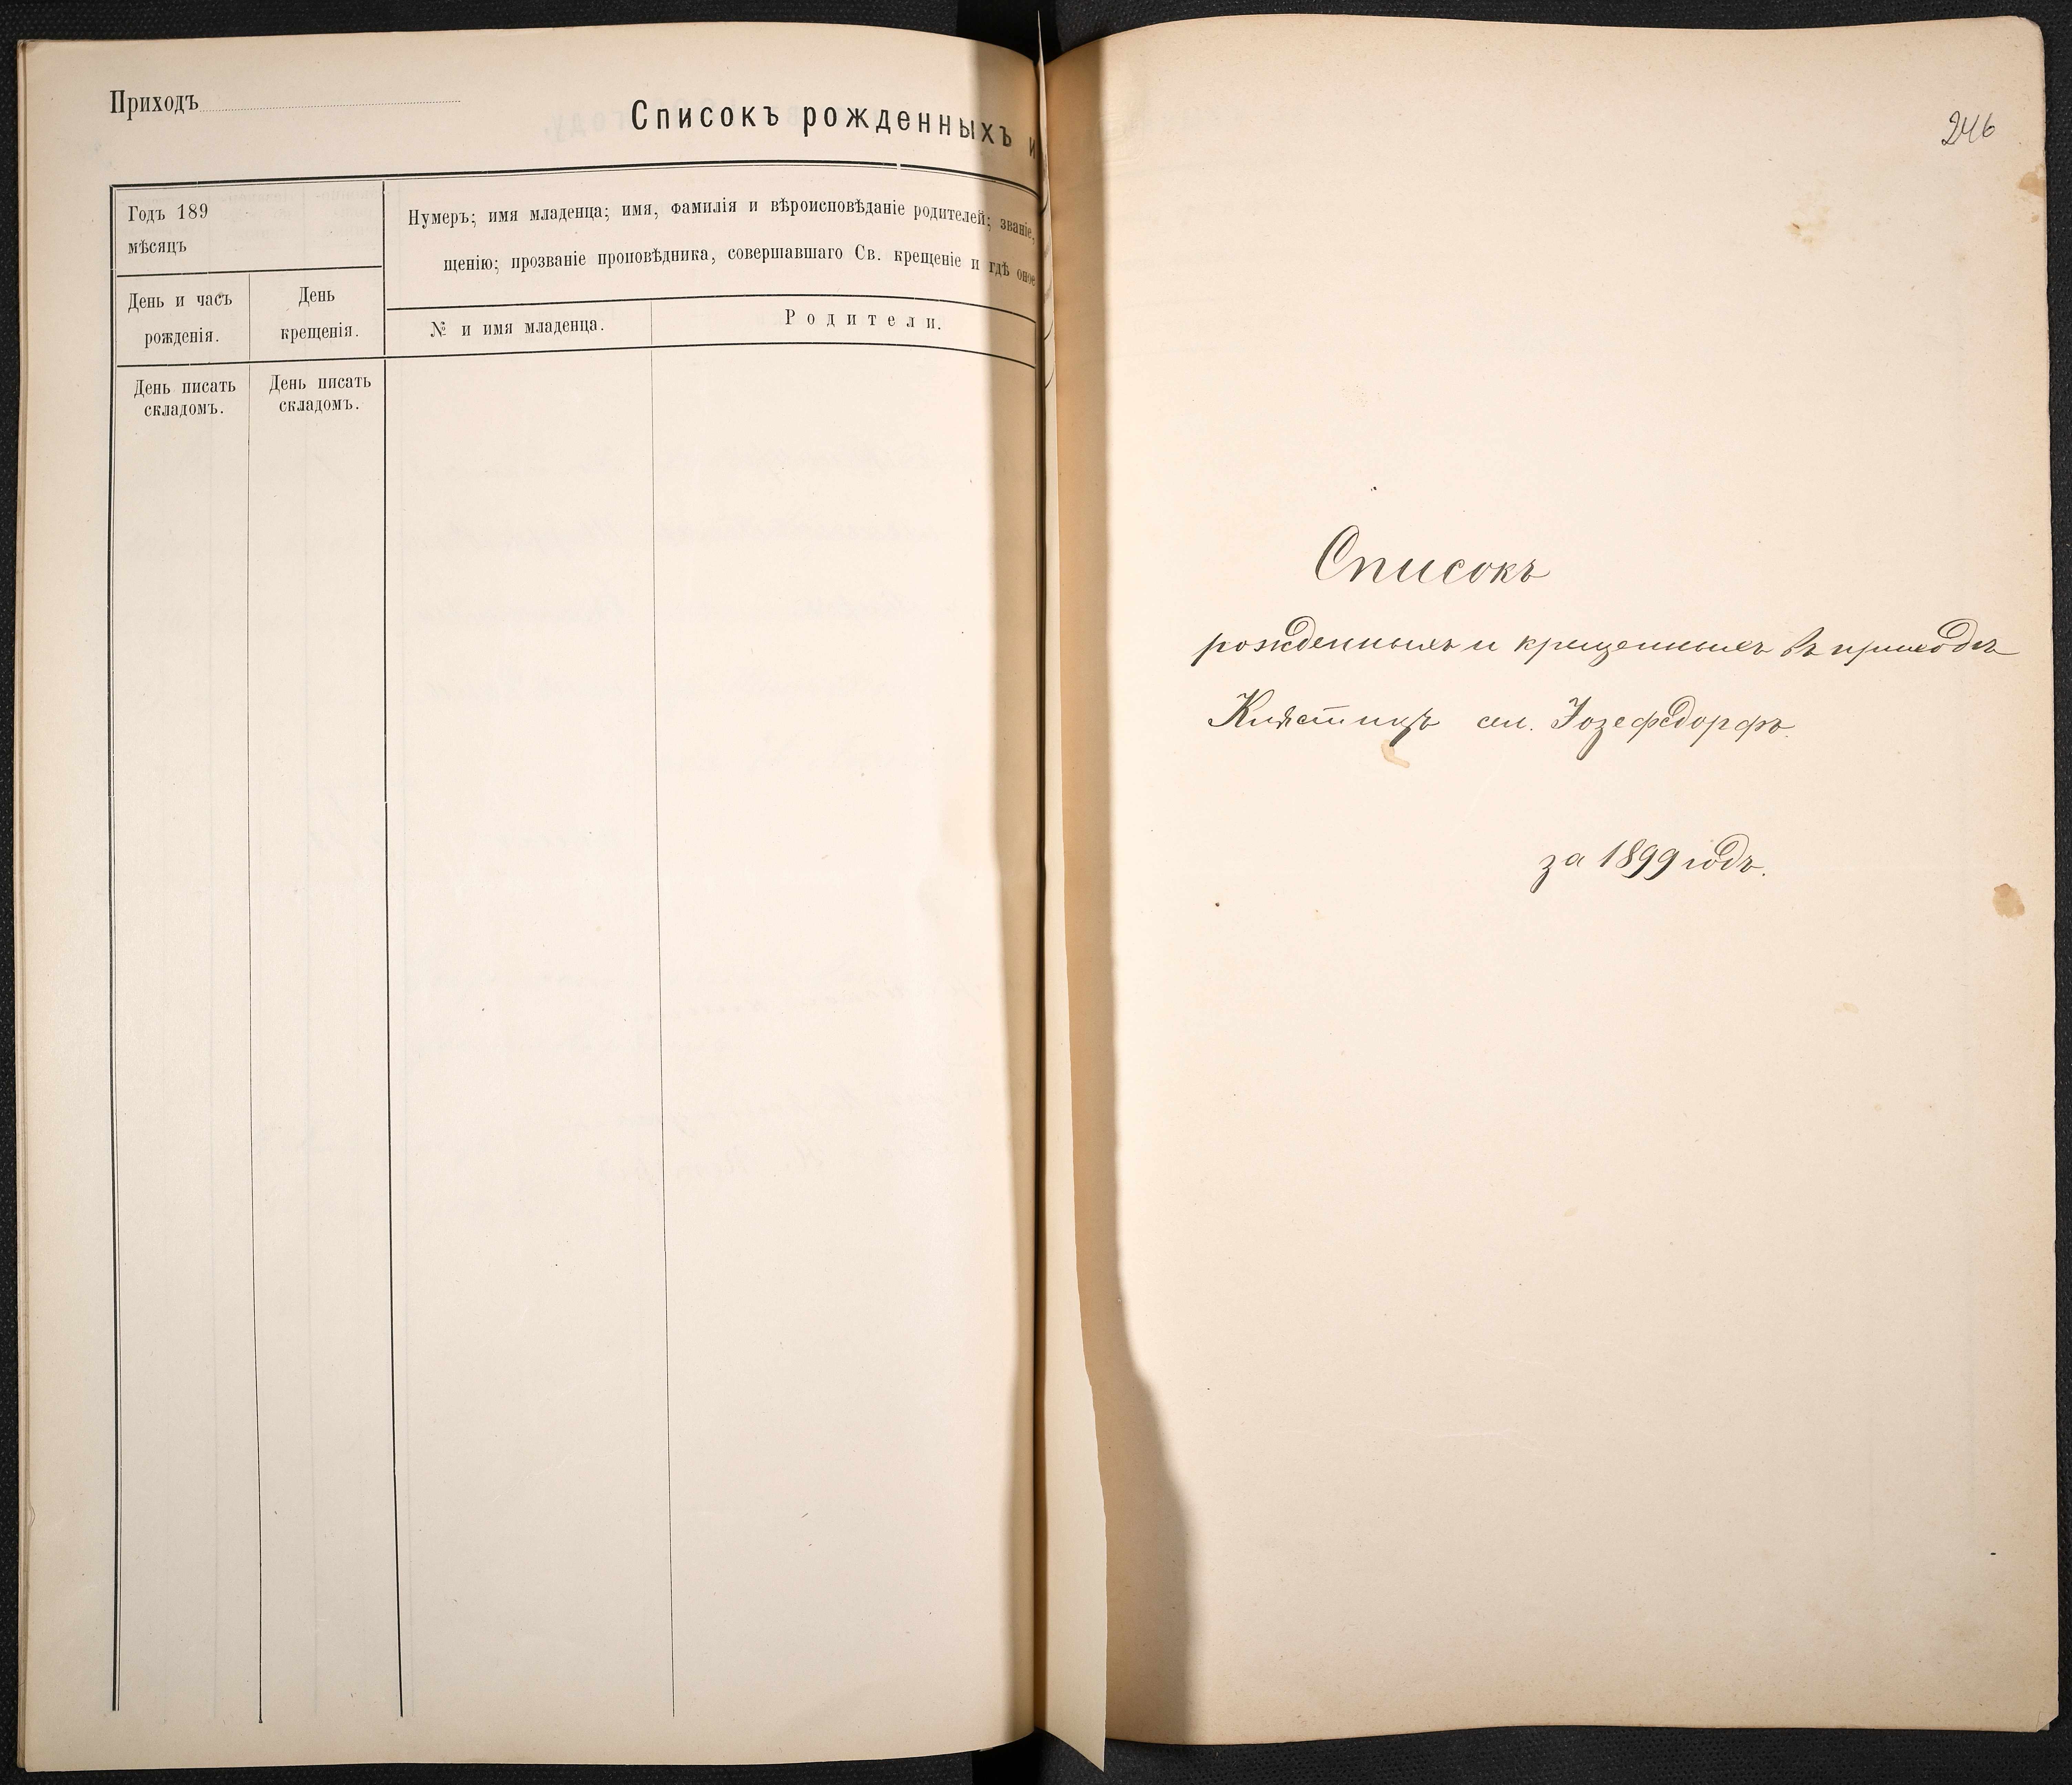 Приходъ
Списокъ рожденныхъ и
Годъ 189
мѣсяцъ
Нумеръ; имя младенца; имя, фамилія и вѣроисповѣданіе родителей; званіе,
щенію; прозваніе проповѣдника, совершавшаго Св. крещеніе и гдѣ оное
День и часъ
рожденія.
День
крещенія.
№ и имя младенца.
Родители.
День писать
складомъ.
День писать
складомъ.
246
Списокъ
рожденныхъ и крещенныхъ въ приходѣ
Клястицъ сел. Іозефсдорфъ.
за 1899 годъ.